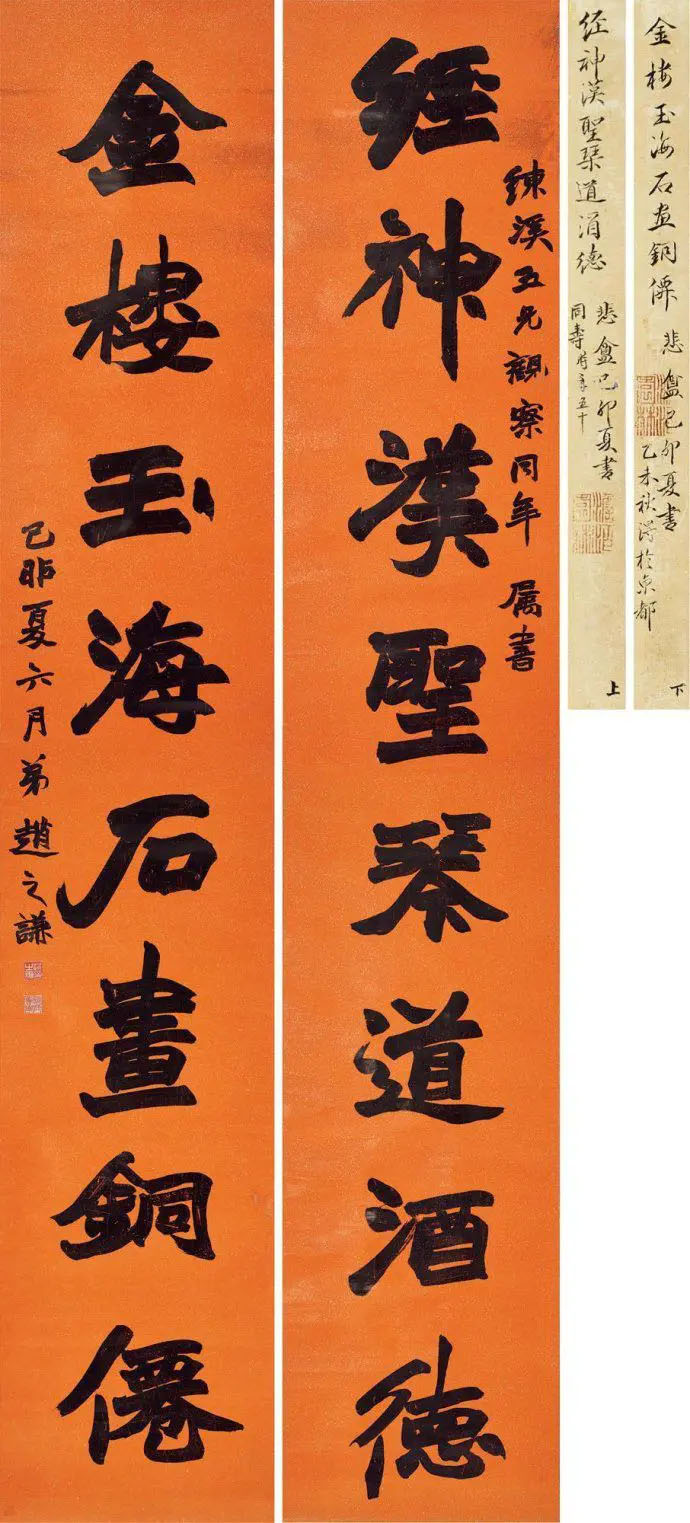 經神漢聖琴道酒德
鍊溪五兄觀察同年 属書
金樓玉海石畫銅僊
己卯夏六月弟趙之謙
经神漢聖琴道酒德
悲盦己卯夏書
同壽時年五十
上
金樓玉海石画銅僊
悲盦己卯夏書
乙未秋得於京都
下